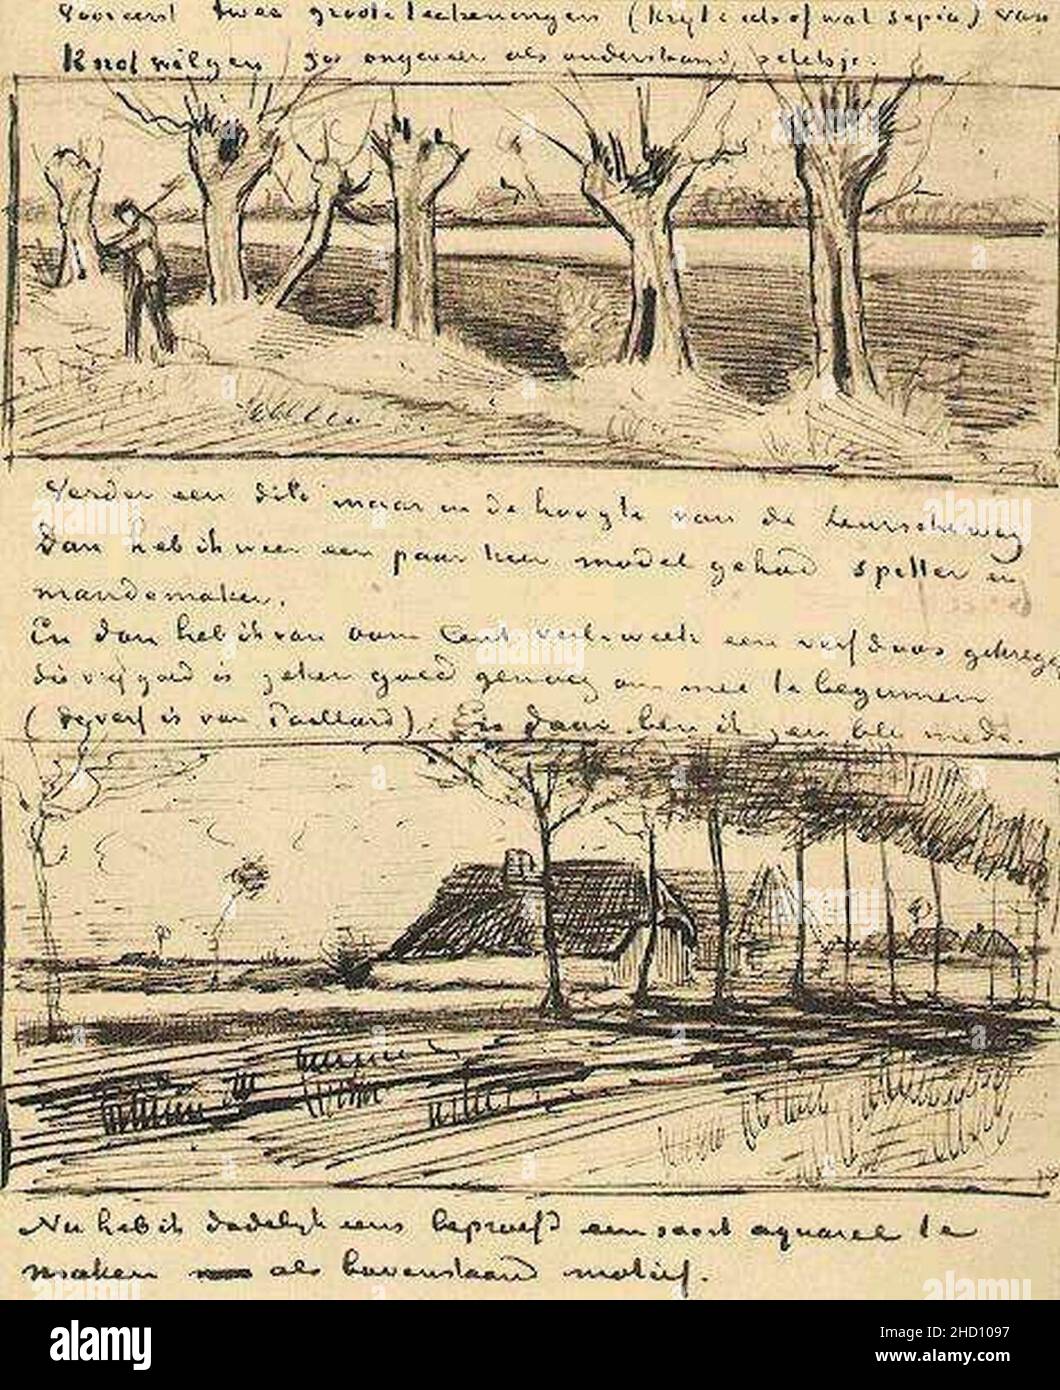 Vooreerst twee groote teekeningen (krijt en ook of wat sepia) van
Knotwilgen zoo ongeveer als onderstaand schetsje.
Verder een dito maar in de hoogte van de Leurscheweg
Dan heb ik weer een paar keer model gehad spitter en
mandemaker.
En dan heb ik van oom Cent verl. week een verfdoos gekregen
die vrij goed is zeker goed genoeg om mee te beginnen
(de verf is van Paillard). En daar ben ik zeer blij mede.
Nu heb ik dadelijk eens beproefd een soort aquarel te
maken als bovenstaand motief.
alamy
alamy
Image ID: 2HD1097
www.alamy.com